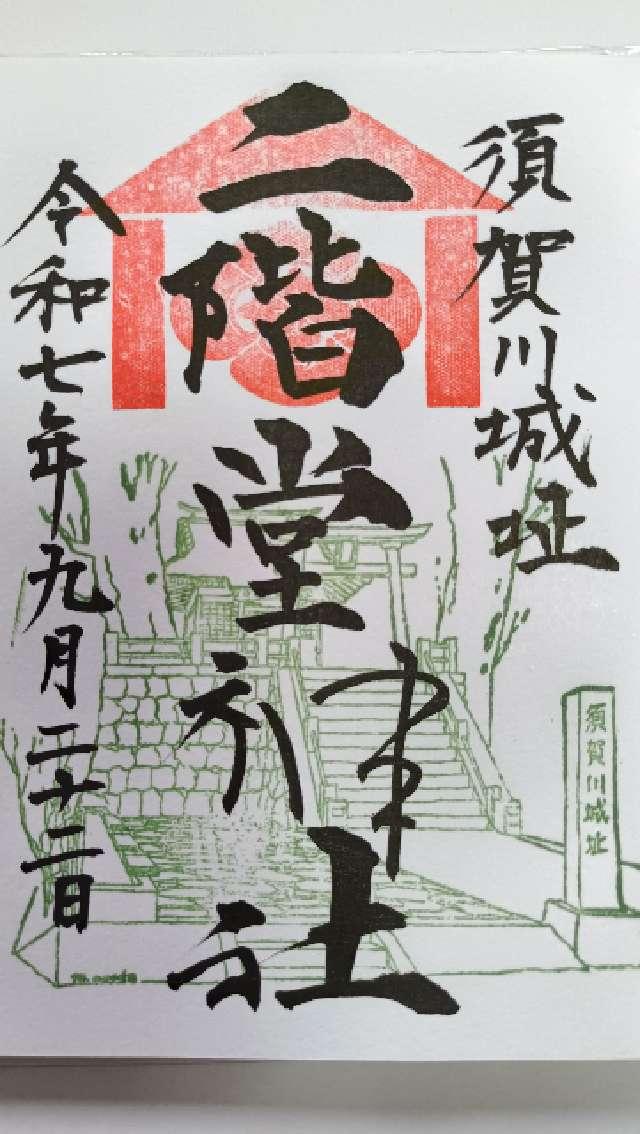 須賀川城址
二階堂神社
令和七年九月二十二日
須賀川城址